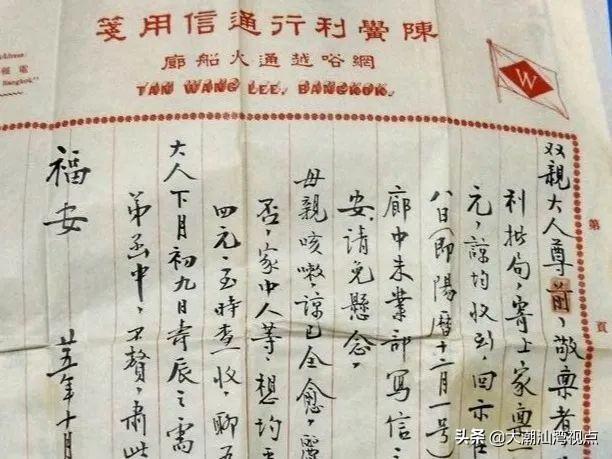 陳黌利行通信用箋
網峪越通大船廊
TAN WANG LEE, BANGKOK.
Address:
Bangkok."
W
第 頁
双親大人尊前，敬禀者
利批局，寄上家禀一
元，諒均收到，回示
八日（即陽曆十二月一号）
廊中米業部寫信之
安，請免懸念。
母親咳嗽，諒已全愈，
否，家中人等，想均
四元，至時查收，聊
大人下月初九日壽辰之需
弟函中，不贅，肅此
福安
廿五年十月
头条 @大潮汕湾视点